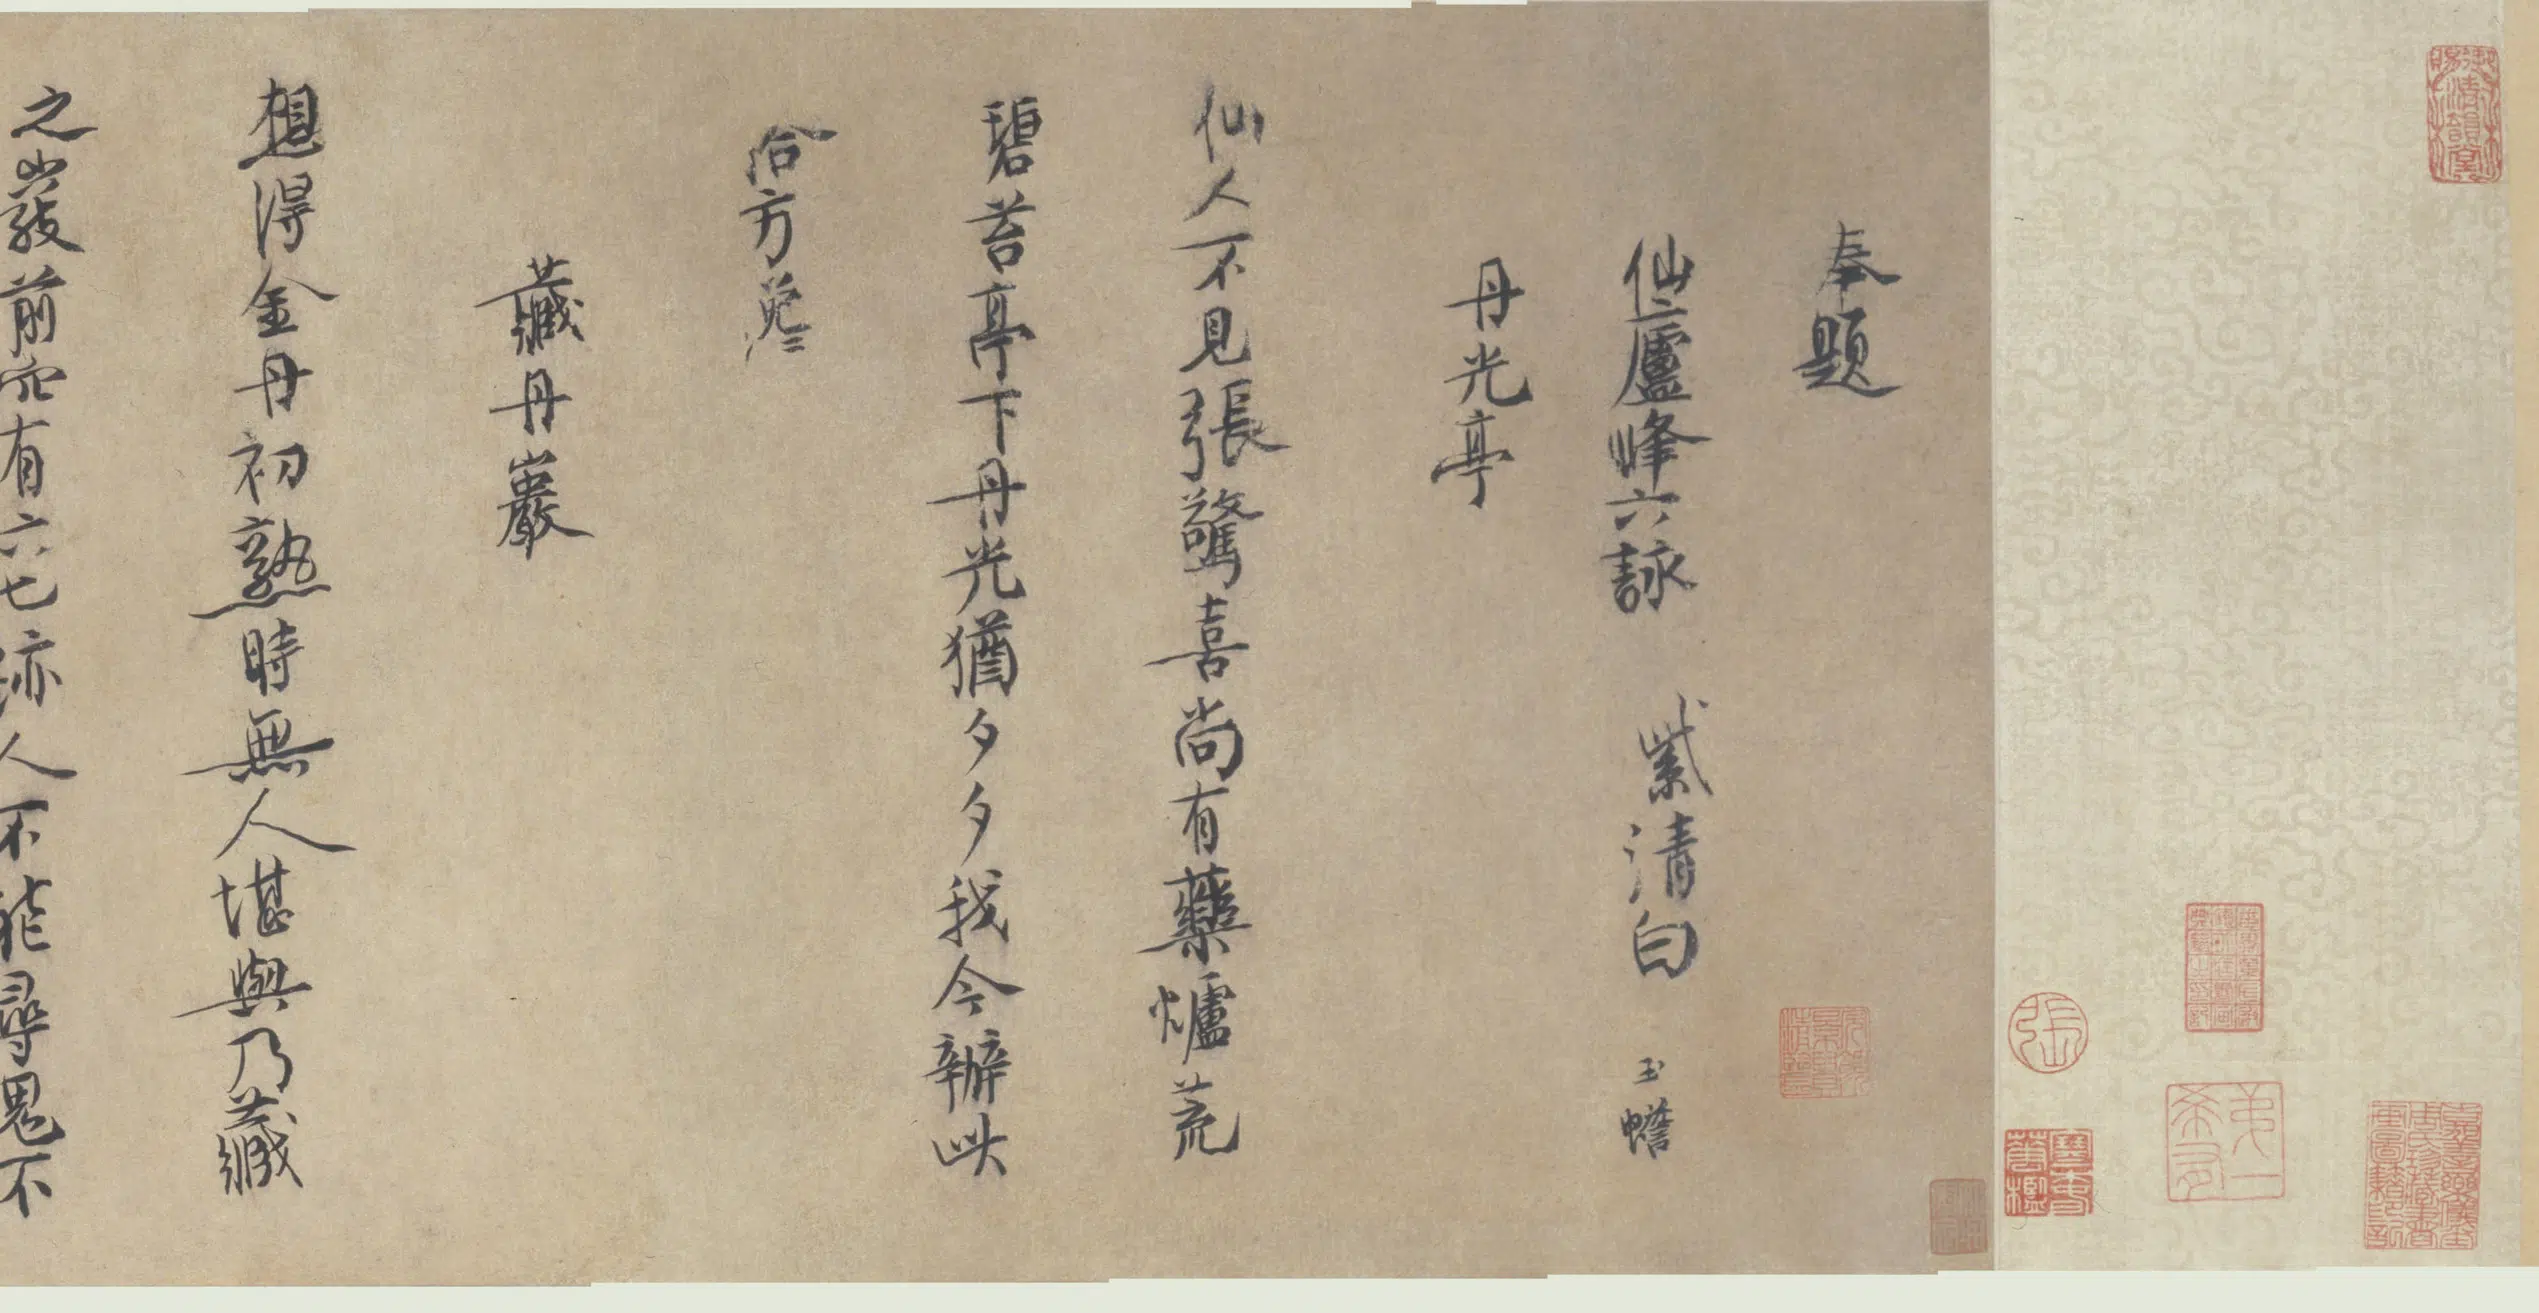 奉題
仙廬峰六詠 紫清白 玉蟾
丹光亭
仙人不見張驚喜尚有藥爐荒
碧苔亭下丹光猶夕夕我今辦
方
藏丹巖
想得金丹初熟時無人堪與乃藏
之巖前穴有六七跡人不能尋鬼不
張